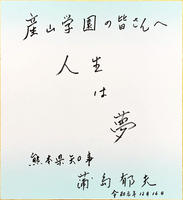 産山学園の皆さんへ
人生
は
夢
熊本県知事
蒲島郁夫
令和元年12月16日